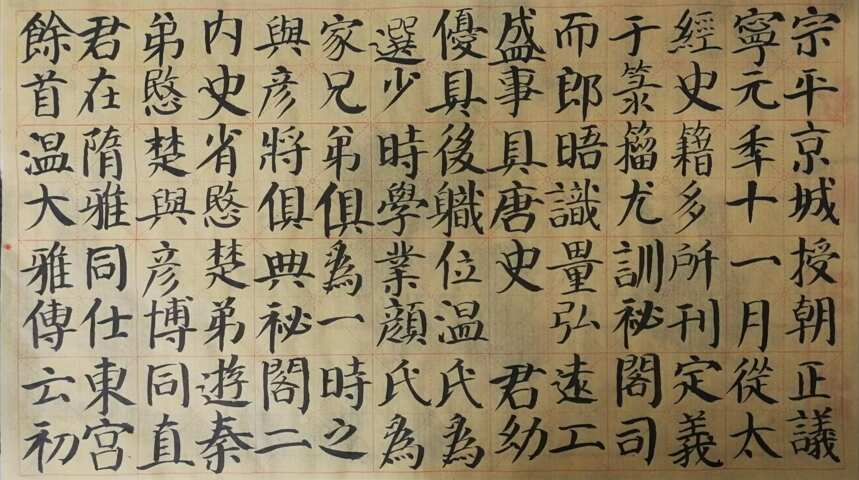 餘首溫大雅傳云初
君在隋雅同仕東宮
弟愍楚與彥博同直
内史省愍楚弟遊秦
與彥將俱典祕閣二
家兄弟俱為一時之
選少時學業顏氏為
優具後職位溫氏為
盛事具唐史 君幼
而郎晤識量弘遠工
于篆籀尤訓祕閣司
經史籍多所刊定義
寧元秊十一月從太
宗平京城授朝正議